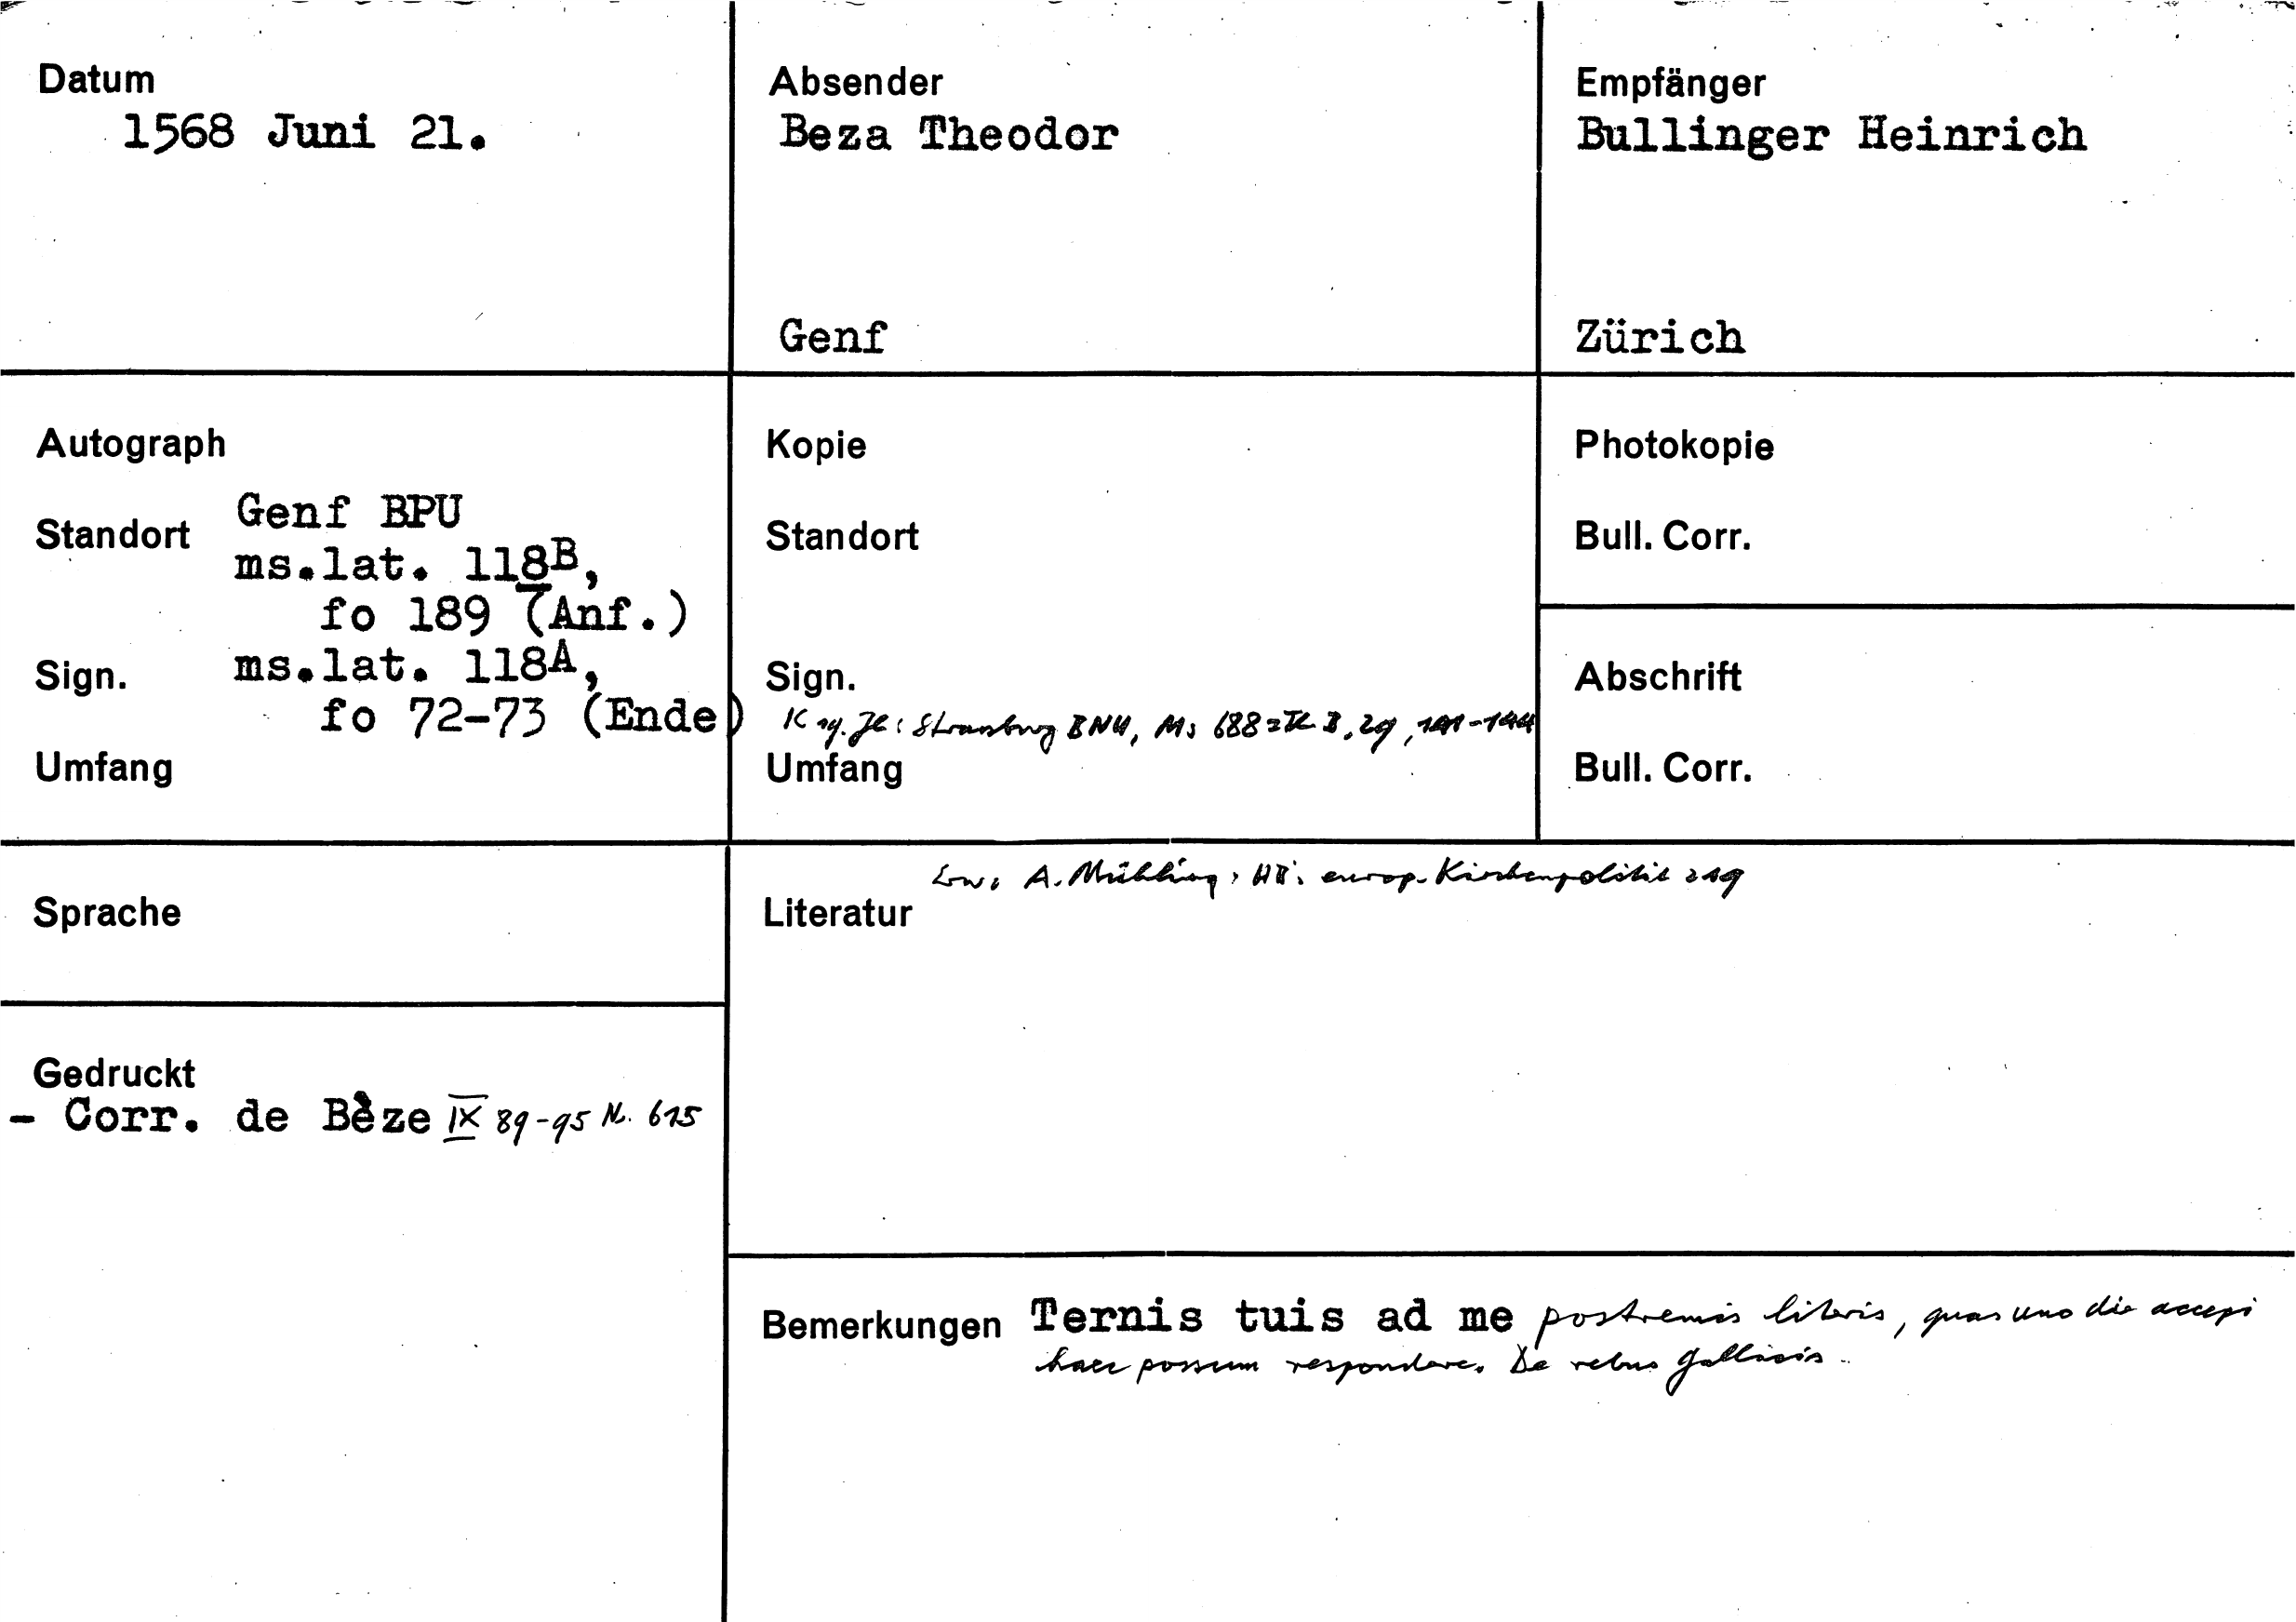 Datum
1568 Juni 21.
Absender
Beza Theodor
Genf
Empfänger
Bullinger Heinrich
Zürich
Autograph
Standort
Genf BPU
ms.lat. 118B,
fo 189 (Anf.)
Sign.
ms.lat. 118A,
fo 72-73 (Ende)
Umfang
Kopie
Standort
Sign.
Strassburg BNU, Ms 688 = Th. B, 29, 141-144
Umfang
Photokopie
Bull. Corr.
Abschrift
Bull. Corr.
Sprache
Gedruckt
- Corr. de Bèze IX 89-95 N. 615
A. Mühling, HB: europ. Kirchenpolitik 219
Literatur
Bemerkungen Ternis tuis ad me postremis literis, quas uno die accepi
haec possum respondere. De rebus Gallicis